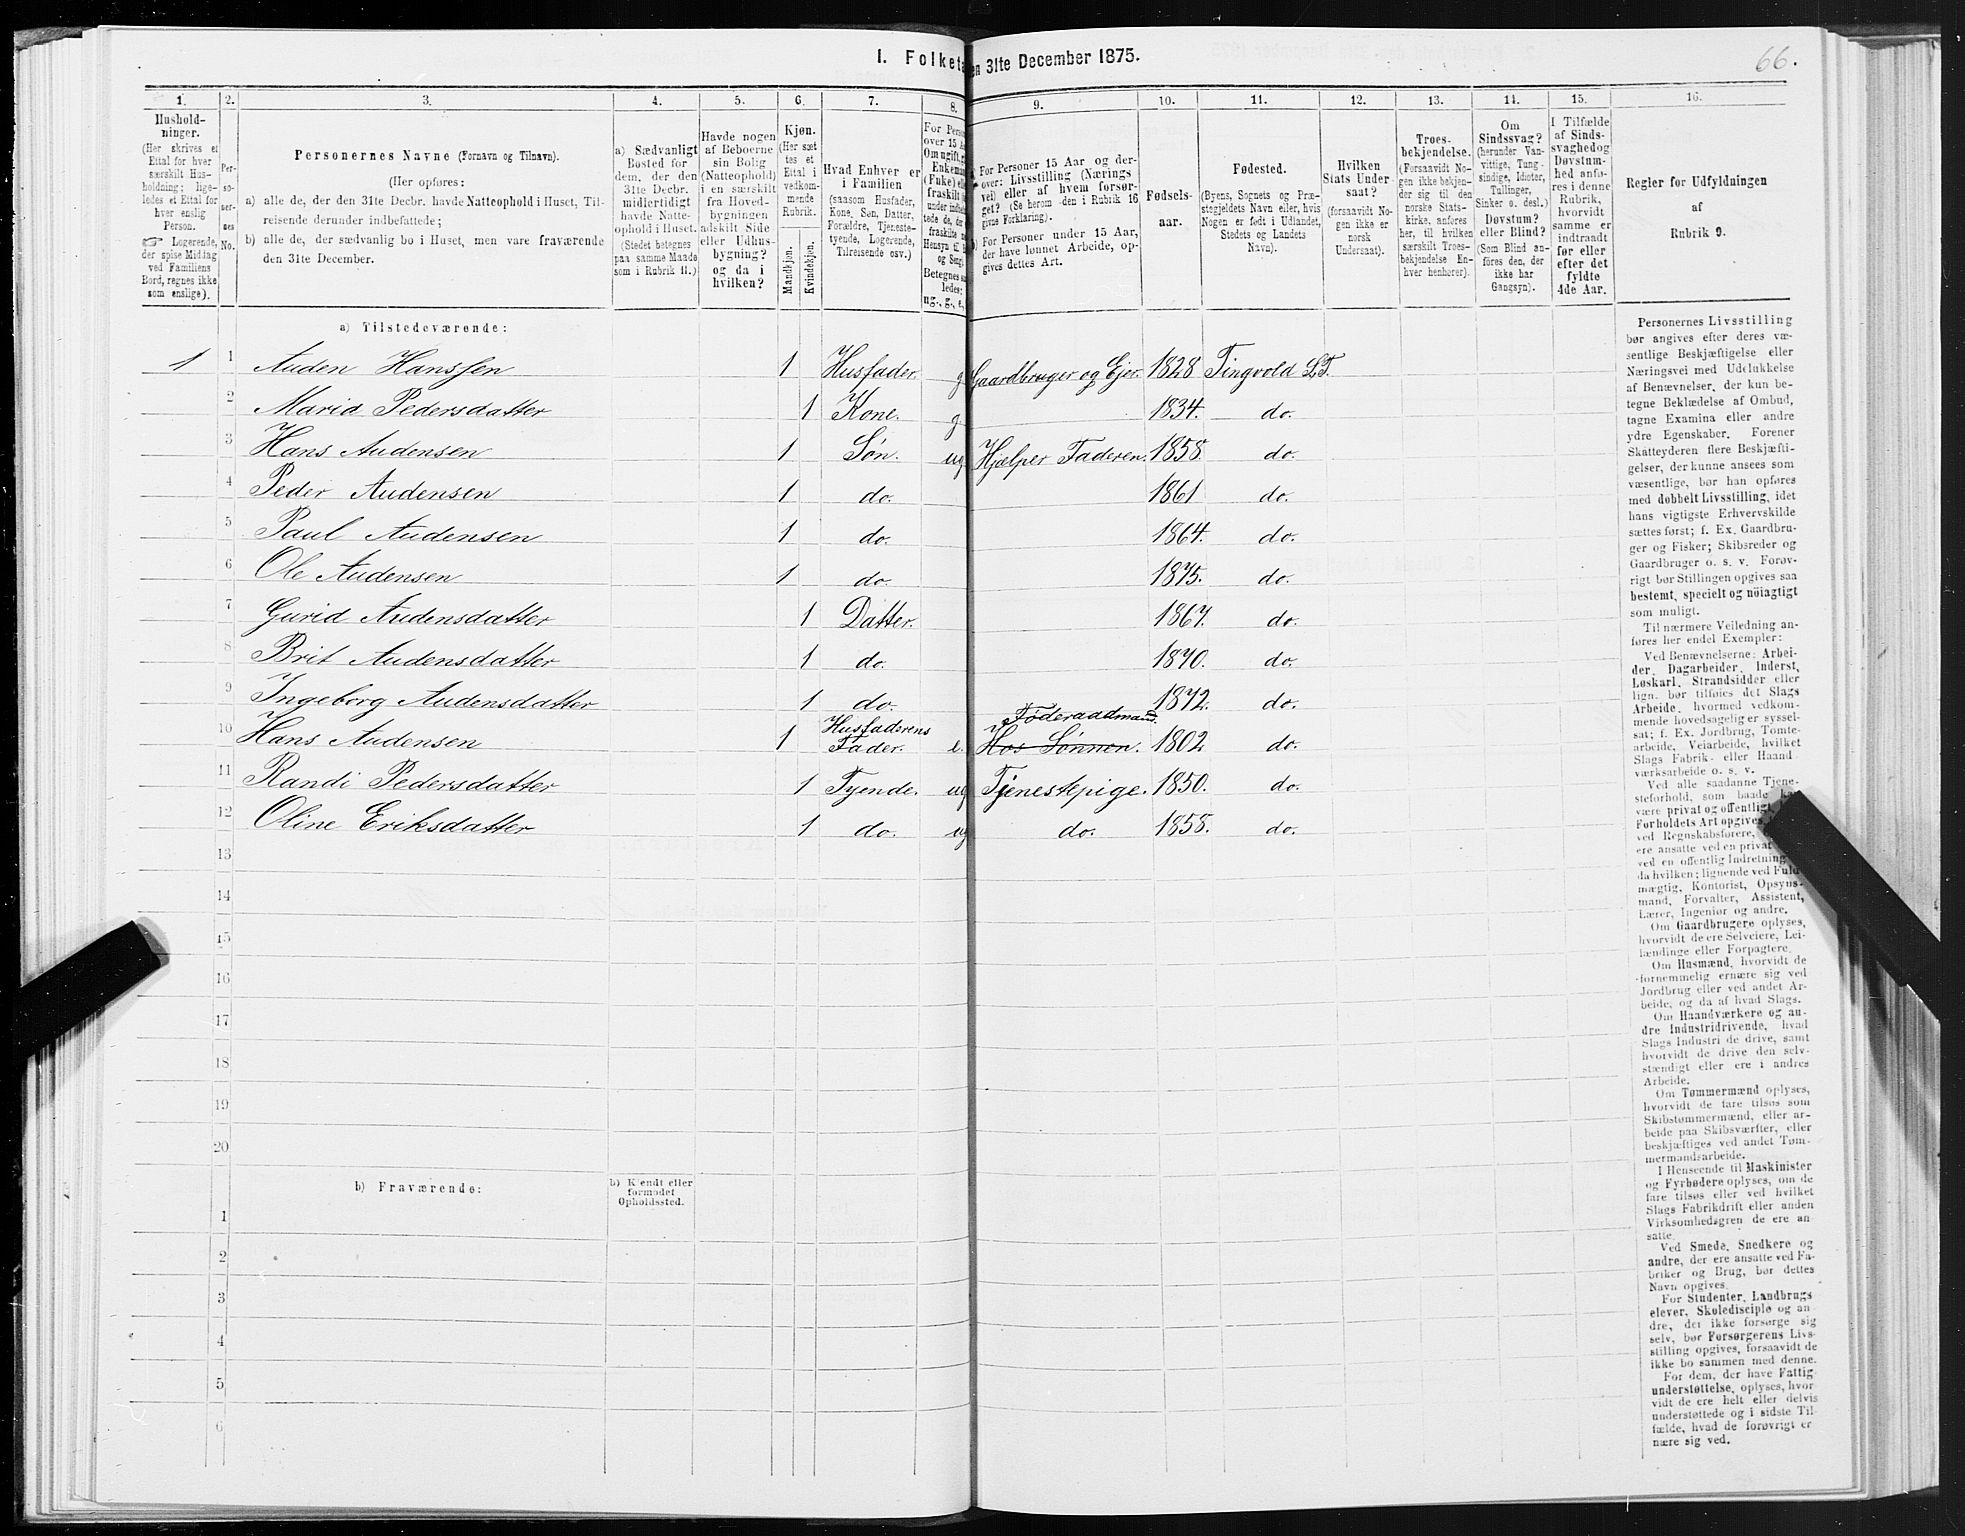 66.
1. Folketæ
en 31te December 1875.
1. 2. 3. 4. 5. 6. 7. 8. 9. 10. 11. 12. 13. 14. 15. 16.
Hushold-
ninger.
(Her skrives et
Ettal for hver
særskilt Hus-
holdning; lige-
ledes et Ettal for
hver enslig
Person.
☞ Logerende,
der spise Middag
ved Familiens
Bord, regnes ikke
som enslige).
Per-
so-
ner-
nes
No.
Personernes Navne (Fornavn og Tilnavn).
(Her opføres:
a) alle de, der den 31te Decbr. havde Natteophold i Huset, Til-
reisende derunder indbefattede;
b) alle de, der sædvanlig bo i Huset, men vare fraværende
den 31te December.
a) Sædvanligt
Bosted for
dem, der den
31te Decbr.
midlertidigt
havde Natte-
ophold i Huset.
(Stedet betegnes
paa samme Maade
som i Rubrik 11.)
Havde nogen
af Beboerne
sin Bolig
(Natteophold)
i en særskilt
fra Hoved-
bygningen
adskilt Side
eller Udhus-
bygning?
og da i
hvilken?
Kjøn.
(Her sæt
tes et
Ettal i
vedkom-
mende
Rubrik.
Mandkjøn.
Kvindekjøn.
Hvad Enhver er
i Familien
(saasom Husfader,
Kone, Søn, Datter,
Forældre, Tjeneste-
tyende, Logerende,
Tilreisende osv.)
For Perso
over 15 Aa
Om ugift, g
Enkeman
(Fuke) el
fraskilt
under indb
tede de, de
fraskilte
Hensyn ti
og Seng.
Betegnes s
ledes:
ug., g., e.,
For Personer 15 Aar og der-
over: Livsstilling (Nærings
vei) eller af hvem forsør-
get? (Se herom den i Rubrik 16
givne Forklaring).
b) For Personer under 15 Aar,
der have lønnet Arbeide, op-
gives dettes Art.
Fødsels-
aar.
Fødested.
(Byens, Sognets og Præ-
stegjeldets Navn eller, hvis
Nogen er født i Udlandet,
Stedets og Landets
Navn).
Hvilken
Stats Under-
saat?
(forsaavidt No-
gen ikke er
norsk
Undersaat).
Troes-
bekjendelse.
(Forsaavidt No-
gen ikke bekjen-
der sig til den
norske Stats-
kirke, anføres
her, til hvilken
særskilt Troes-
bekjendelse En-
hver henhører).
Om
Sindssvag?
(herunder Van-
vittige, Tung-
sindige, Idioter,
Tullinger,
Sinker o. desl.)
Døvstum?
eller Blind?
(Som Blind an-
føres den, der
ikke har
Gangsyn).
I Tilfælde
af Sinds-
svaghed og
Døvstum-
hed anfø-
res i denne
Rubrik,
hvorvidt
samme er
indtraadt
før eller
efter det
fyldte
4de Aar.
Regler for Udfyldningen
af
Rubrik 9.
a) Tilstedeværende:
1 1 Auden Hanssen 1 Husfader. g Gaardbruger og Ejer. 1828 Tingvold S.T.
2 Marid Pedersdatter 1 Kone. g 1834. do.
3 Hans Audensen 1 Søn. ug Hjælper Faderen. 1858. do.
4 Peder Audensen 1 do. 1861 do.
5 Paul Audensen 1 do. 1864. do.
6 Ole Audensen 1 do. 1875. do.
7 Gurid Audensdatter 1 Datter. 1867. do.
8 Brit Audensdatter 1 do. 1870. do.
9 Ingeborg Audensdatter 1 do. 1872. do.
Husfaderens Føderaadmand.
10 Hans Audensen 1 Fader. e. Hos Sønnen. 1802 do.
11 Randi Pedersdatter 1 Tyende. ug Tjenestepige. 1850. do.
12 Oline Eriksdatter 1 do. ug do. 1858. do.
13
14
15
16
17
18
19
20
b) Fraværende:
b) Kjendt eller
formodet
Opholdssted.
1
2
3
4
5
6
Personernes Livsstilling
bør angives efter deres væ-
sentlige Beskjæftigelse eller
Næringsvei med Udelukkelse
af Benævnelser, der kun be-
tegne Beklædelse af Ombud,
tagne Examina eller andre
ydre Egenskaber. Forener
Skatteyderen flere Beskjæfti-
gelser, der kunne ansees som
væsentlige, bør han opføres
med dobbelt Livsstilling, idet
hans vigtigste Erhvervskilde
sættes først; f. Ex. Gaardbru-
ger og Fisker; Skibsreder og
Gaardbruger o. s. v. Forøv-
rigt bør Stillingen opgives saa
bestemt, specielt og nöiagtigt
som muligt.
Til nærmere Veiledning an-
føres her endel Exempler:
Ved Benævnelserne: Arbei-
der, Dagarbeider, Inderst,
Løskarl, Strandsidder eller
lign. bør tilføies det Slags
Arbeide, hvormed vedkom-
mende hovedsagelig er syssel-
sat; f. Ex. Jordbrug, Tomte-
arbeide, Veiarbeide, hvilket
Slags Fabrik- eller Haand
værksarbeide o. s. v.
Ved alle saadanne Tjene-
steforhold, som baade ka
være privat og offentligt
Forholdets Art opgives
ved Regnskabsførere,
ere ansatte ved en privat
ved en offentlig Indretning
da hvilken; lignende ved Fuld
mægtig, Kontorist, Opsyns-
mand, Forvalter, Assistent,
Lærer, Ingeniør og andre.
Om Gaardbrugere oplyses,
hvorvidt de ere Selveiere, Lei-
lændinge eller Forpagtere.
Om Husmænd, hvorvidt de
fornemmelig ernære sig ved
Jordbrug eller ved andet Ar-
beide, og da af hvad Slags.
Om Haandværkere og an-
dre Industridrivende, hvad
Slags Industri de drive, samt
hvorvidt de drive den selv-
stændigt eller ere i andres
Arbeide.
Om Tømmermænd oplyses,
hvorvidt de fare tilsøs som
Skibstømmermænd, eller ar-
beide paa Skibsværfter, eller
beskjæftiges ved andet Tøm-
mermandsarbeide.
I Henseende til Maskinister
og Fyrbødere oplyses, om de
fare tilsøs eller ved hvilket
Slags Fabrikdrift eller anden
Virksomhedsgren de ere an-
satte.
Ved Smede, Snedkere og
andre, der ere ansatte ved Fa-
briker og Brug, bør dettes
Navn opgives.
For Studenter, Landbrugs
elever, Skoledisciple og an-
dre, der ikke forsørge sig
selv, bør Forsørgerens Livs-
stilling opgives, forsaavidt de
ikke bo sammen med denne.
For dem, der have Fattig-
understøttelse, oplyses, hvor-
vidt de ere helt eller delvis
understøttede og i sidste Til-
fælde, hvad de forøvrigt er
nære sig ved.